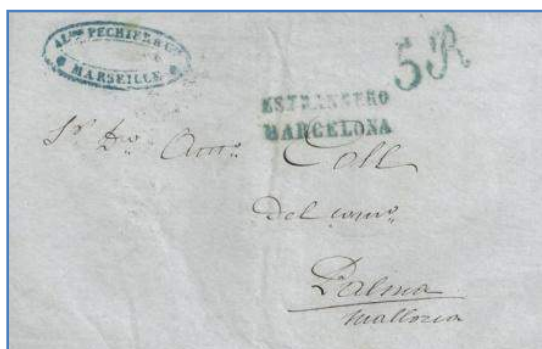 ALne PECHIER & Ce
MARSEILLE
5R
ESTRANGERO
BARCELONA
Sr Dn Anto Coll
del como
Palma
Mallorca